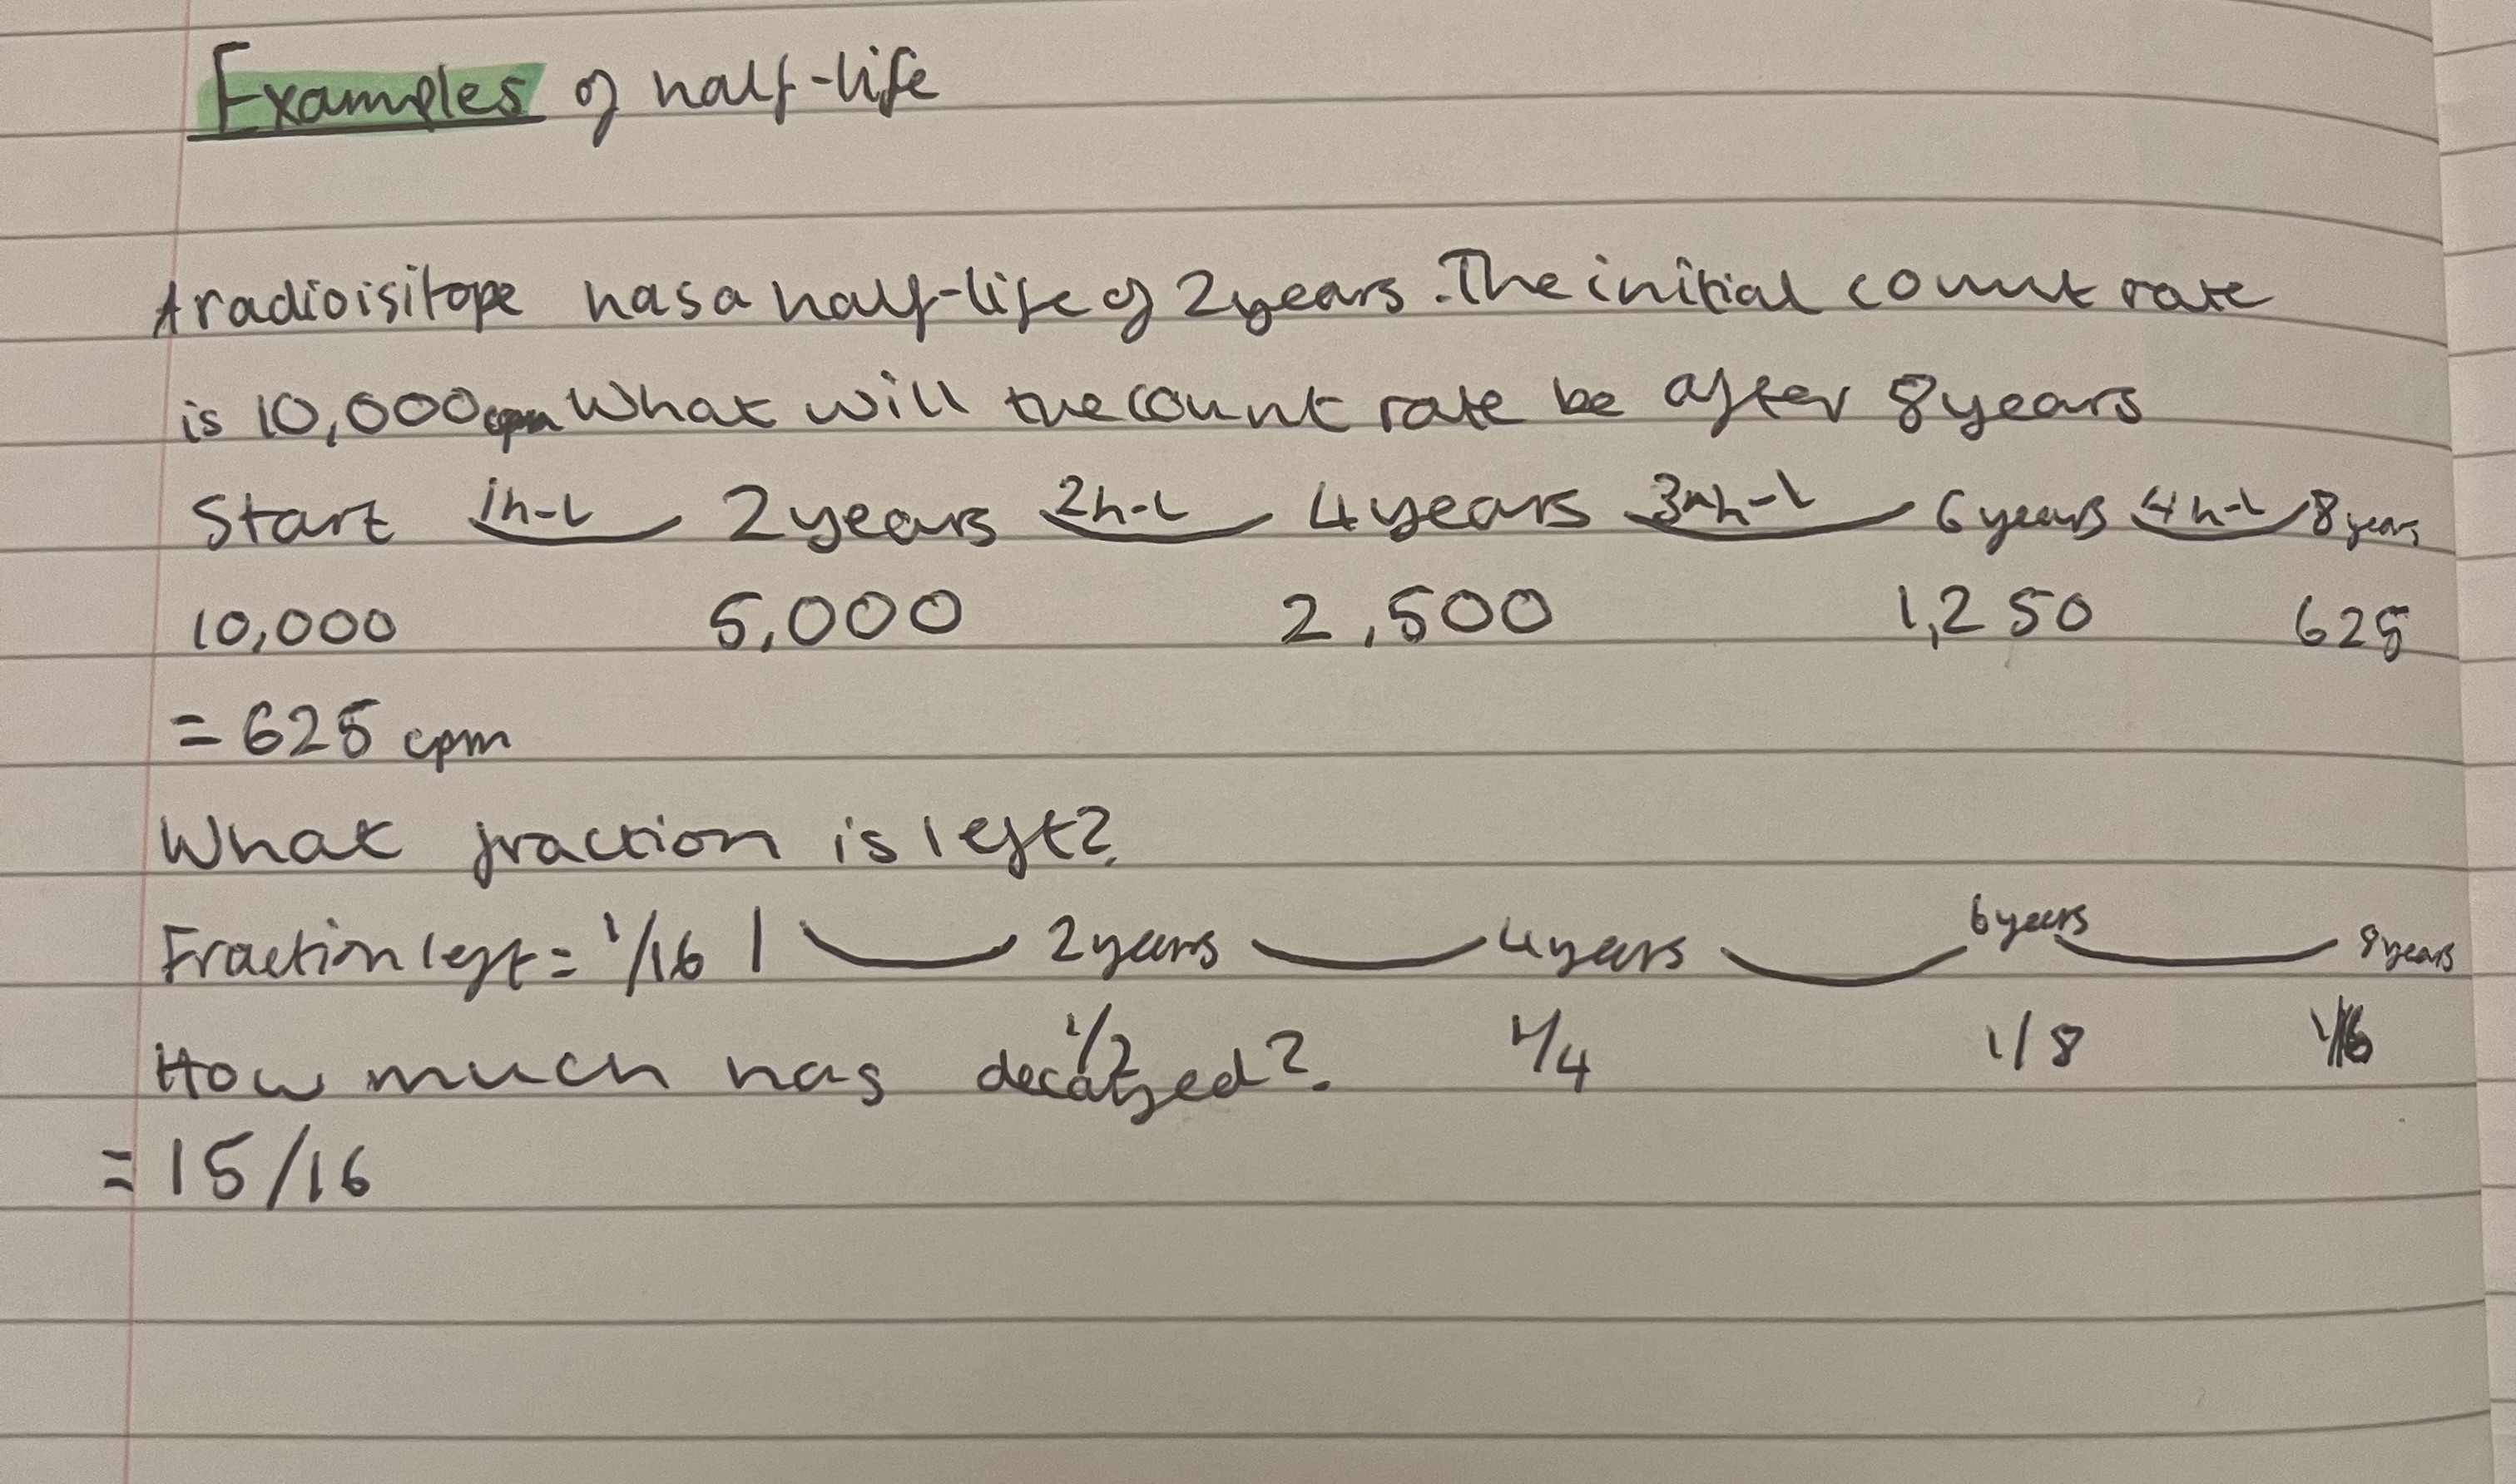 Examples of half-life
A radioisitope has a half-life of 2 years. The initial count rate
is 10,000 cpm What will the count rate be after 8 years
Start 1h-L 2 years 2h-L 4 years 3h-L 6 years 4h-L 8 years
10,000 5,000 2,500 1,250 625
= 625 cpm
What fraction is left?
Fraction left = 1/16 | 2 years 4 years 6 years 8 years
1/2 1/4 1/8 1/16
How much has decayed?
= 15/16